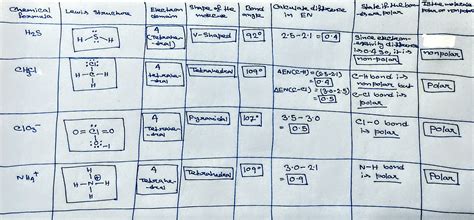 Chemical formula | Lewis Structure | Electron domain | Shape of the molecule | Bond angle | Calculate difference in EN | State if the bonds are polar | Is the molecule polar or nonpolar
H₂S | H–S–H | 4 (tetrahedral) | V-Shaped | 92° | 2.5-2.1 = 0.4 | Since electronegativity difference is 0.4 so, it is nonpolar | nonpolar
CH₃Cl | :Cl: H–C–H H | 4 tetrahedral | Tetrahedral | 109° | ΔEN(C-H) = (2.5-2.1) = 0.4 ΔEN(C-Cl) = (3.0-2.5) = 0.5 | C-H bond is nonpolar but C-Cl bond is polar | Polar
ClO₃⁻ | O=Cl=O :O: -1 | 4 (Tetrahedral) | Pyramidal | 107° | 3.5-3.0 = 0.5 | Cl-O bond is polar | Polar
NH₄⁺ | H H–N–H H ⊕ | 4 (Tetrahedral) | Tetrahedral | 109° | 3.0-2.1 = 0.9 | N-H bond is polar | Polar